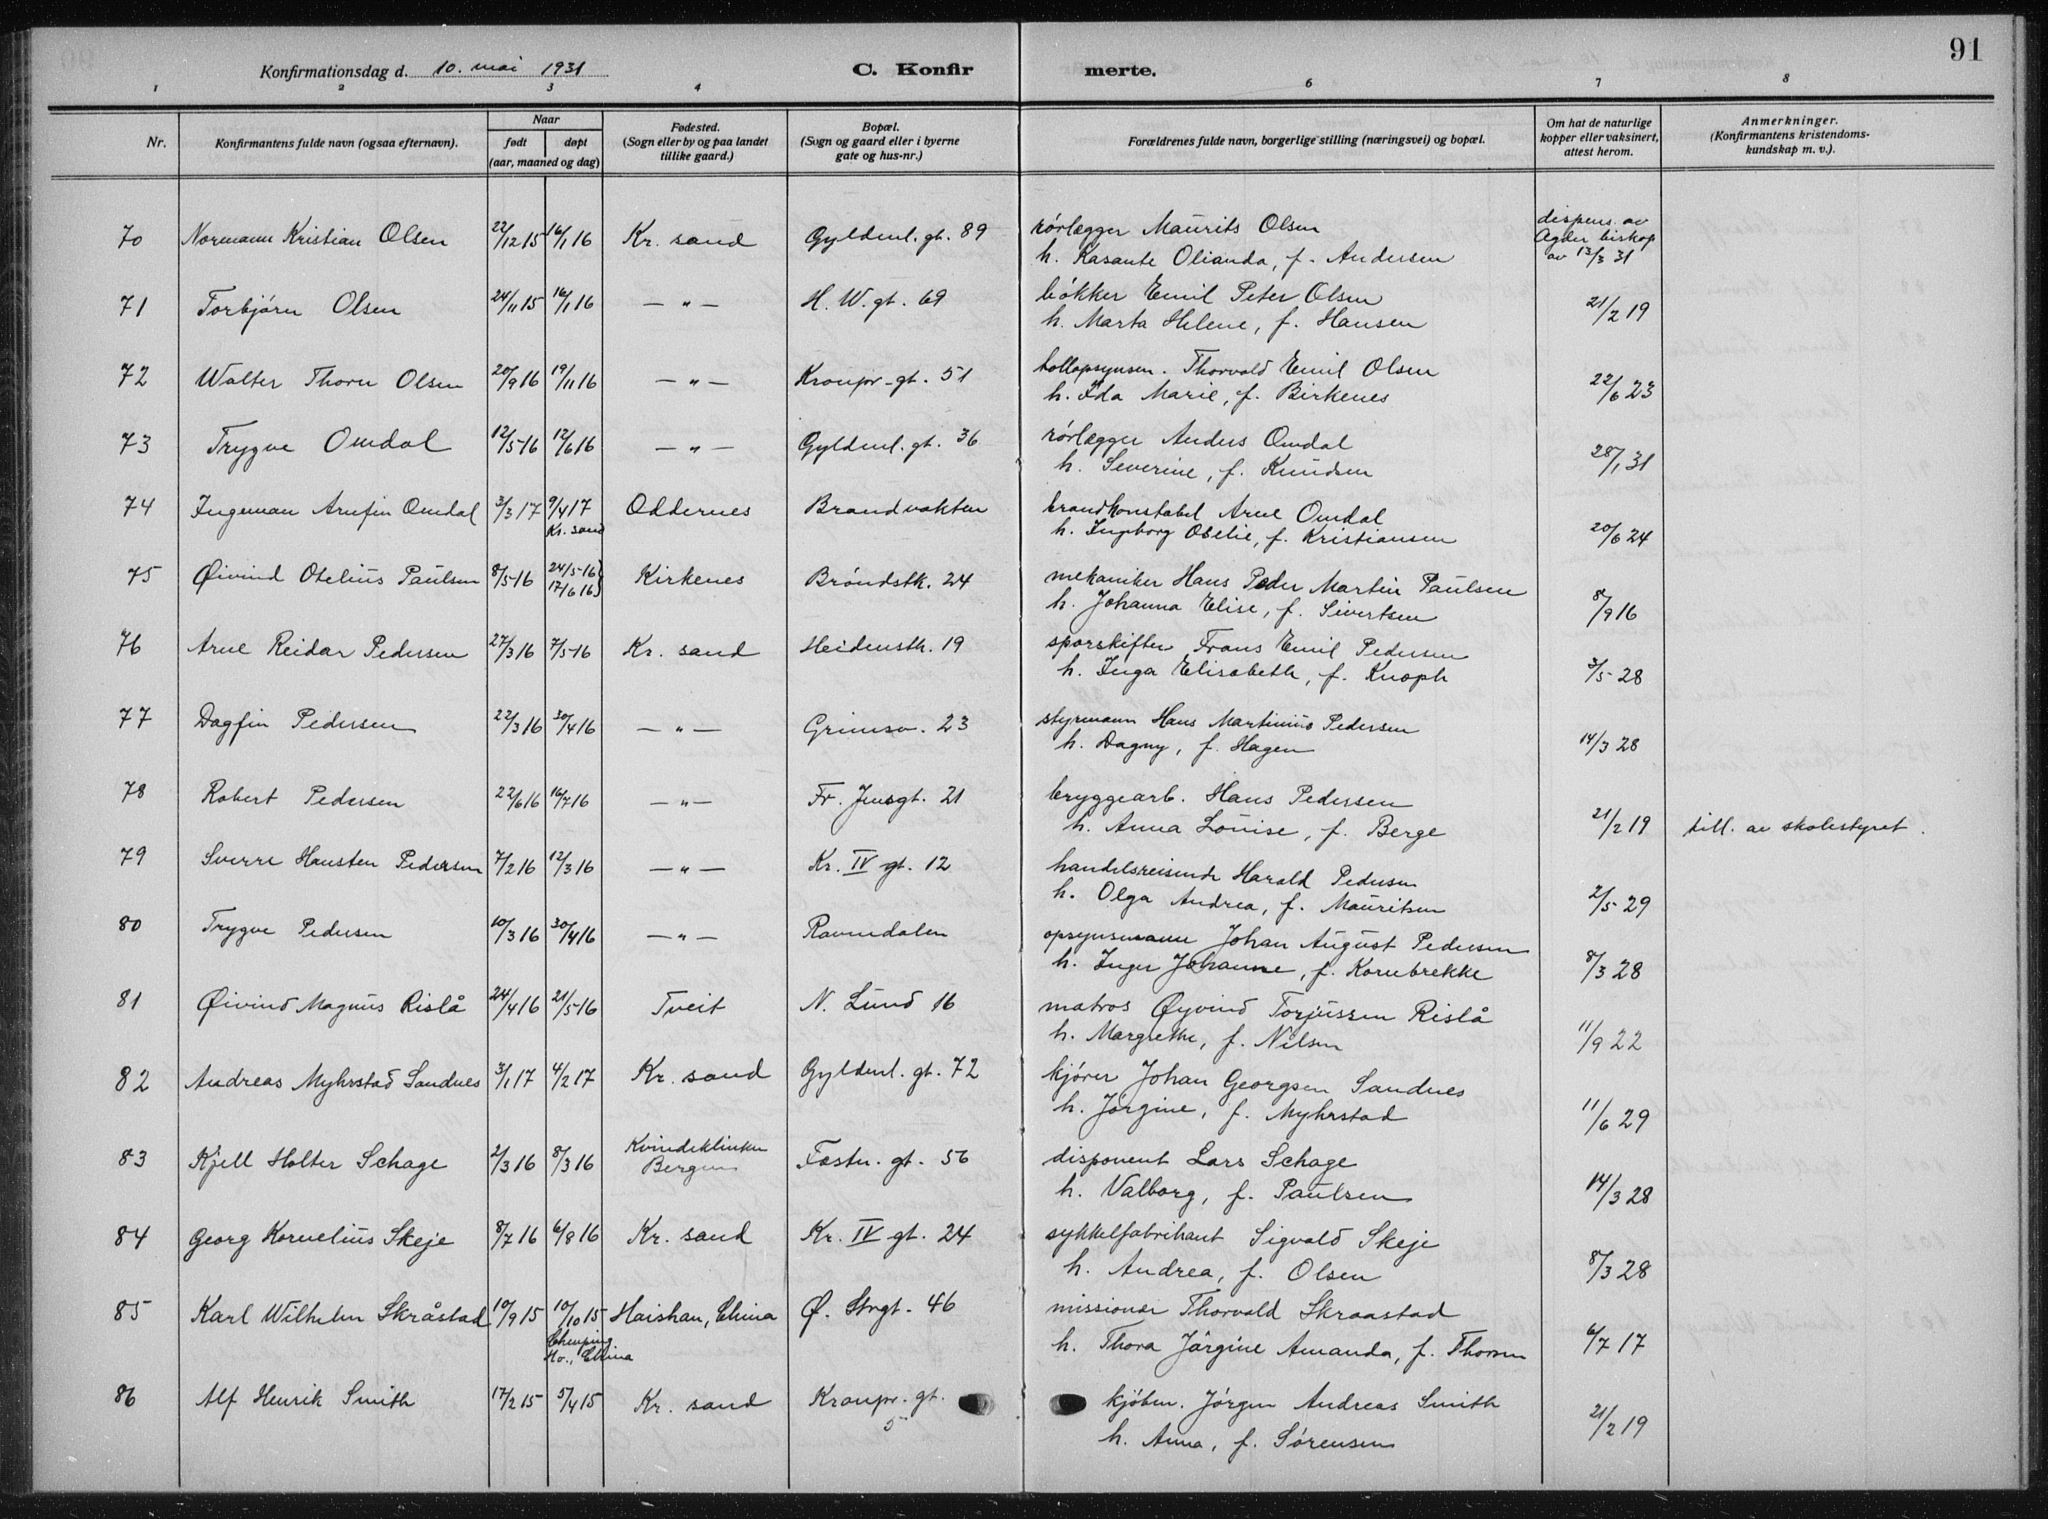 91
Konfirmationsdag d. 10. mai 1931 C. Konfirmerte.
1 2 3 4 6 7 8
Nr. Konfirmantens fulde navn (ogsaa efternavn). Naar født døpt (aar, maaned og dag) Fødested. (Sogn eller by og paa landet tillike gaard.) Bopæl. (Sogn og gaard eller i byerne gate og hus-nr.) Forældrenes fulde navn, borgerlige stilling (næringsvei) og bopæl. Om hat de naturlige kopper eller vaksinert, attest herom. Anmerkninger. (Konfirmantens kristendoms-kundskap m. v.).
70 Normann Kristian Olsen 22/12 15 16/1 16 Kr. sand Gyldenl. gt. 89 rörlægger Maurits Olsen dispens. av Agder biskop av 13/3 31
h. Kasante Olianda, f. Andersen
71 Torbjörn Olsen 24/11 15 16/1 16 — " — H. W. gt. 69 bökker Emil Peter Olsen 21/2 19
h. Marta Helene, f. Hansen
72 Walter Thorn Olsen 20/9 16 19/11 16 — " — Kronpr. gt. 51 tollopsynsm. Thorvald Emil Olsen 22/6 23
h. Ida Marie, f. Birkenes
73 Trygve Omdal 12/5 16 12/6 16 — " — Gyldenl. gt. 36 rörlægger Anders Omdal 28/1 31
h. Severine, f. Knudsen
74 Ingeman Arnfin Omdal 3/3 17 9/4 17 Kr. sand Oddernes Brandvakten brandkonstabel Arne Omdal 20/6 24
h. Ingborg Otelie, f. Kristiansen
75 Øivind Otelius Paulsen 8/5 16 24/5 16 17/6 16 Kirkenes Bröndstk. 24 mekaniker Hans Peder Martin Paulsen 8/9 16
h. Johanna Elise, f. Sivertsen
76 Arne Reidar Pedersen 27/3 16 7/5 16 Kr. sand Heidensth. 19 sporskifter Frans Emil Pedersen 3/5 28
h. Inga Elisabeth, f. Knoph
77 Dagfin Pedersen 22/3 16 30/4 16 — " — Grimsv. 23 styrmann Hans Martinius Pedersen 14/3 28
h. Dagny, f. Hagen
78 Robert Pedersen 22/6 16 16/7 16 — " — Fr. Jensgt. 21 bryggearb. Hans Pedersen 21/2 19 till. av skolestyret.
h. Anna Louise, f. Berge
79 Sverre Hansten Pedersen 7/2 16 12/3 16 — " — Kr. IV gt. 12 handelsreisende Harald Pedersen 2/5 29
h. Olga Andrea, f. Mauritsen
80 Trygve Pedersen 10/3 16 30/4 16 — " — Ravnedalen opsynsmann Johan August Pedersen 8/3 28
h. Inger Johanne, f. Kornbrekke
81 Øivind Magnus Rislå 24/4 16 21/5 16 Tveit N. Lund 16 matros Øyvind Torjussen Rislå 11/9 22
h. Margrethe, f. Nilsen
82 Andreas Myhrstad Sandnes 3/1 17 4/2 17 Kr. sand Gyldenl. gt. 72 kjörer Johan Georgsen Sandnes 11/6 29
h. Jörgine, f. Myhrstad
83 Kjell Holter Schage 2/3 16 8/3 16 Kvindeklinken Bergen Festn. gt. 56 disponent Lars Schage 14/3 28
h. Valborg, f. Paulsen
84 Georg Kornelius Skeje 8/7 16 6/8 16 Kr. sand Kr. IV gt. 24 sykkelfabrikant Sigvald Skeje 8/3 28
h. Andrea, f. Olsen
85 Karl Wilhelm Skråstad 10/9 15 10/10 15 Chenping Ho., China Haishan, China Ø. Strgt. 46 missionær Thorvald Skraastad 6/7 17
h. Thora Jörgine Amanda, f. Thorsen
86 Alf Henrik Smith 17/2 15 5/4 15 Kr. sand Kronpr. gt. 5 kjöbm. Jörgen Andreas Smith 21/2 19
h. Anna, f. Sörensen